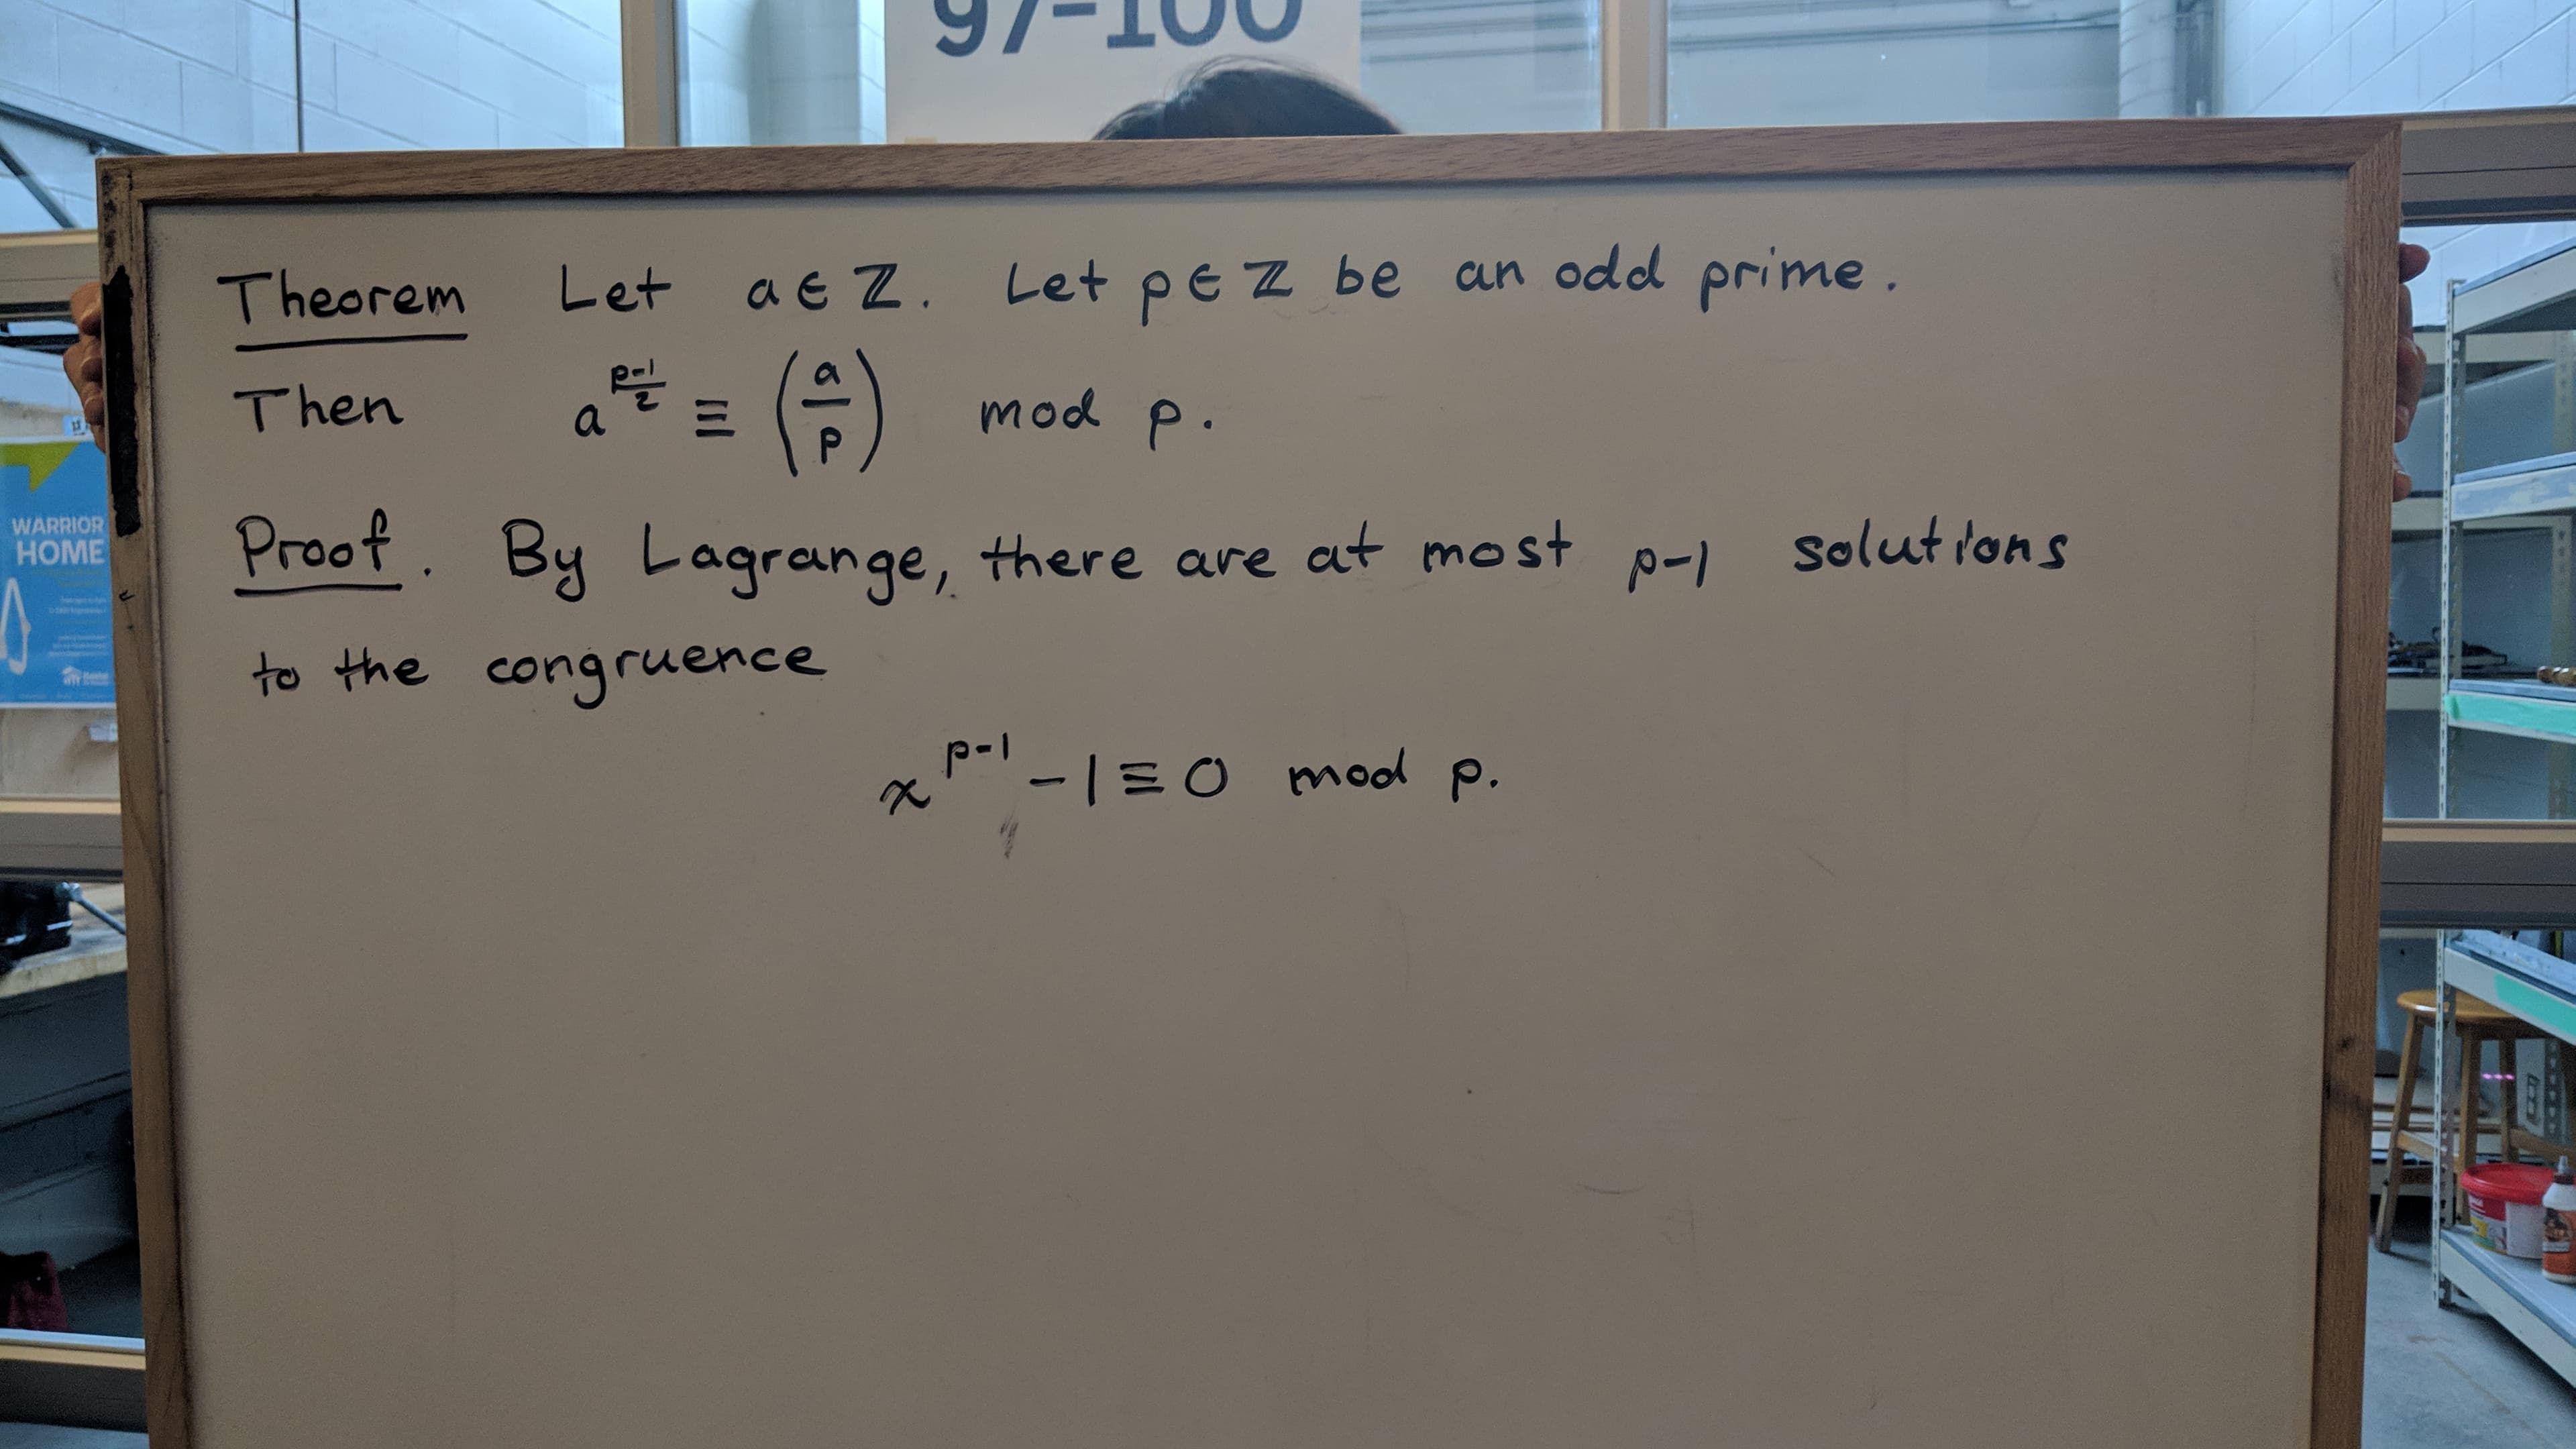 97-100
Theorem Let a ∈ ℤ. Let p ∈ ℤ be an odd prime.
Then a^{\frac{p-1}{2}} ≡ \left(\frac{a}{p}\right) mod p.
Proof. By Lagrange, there are at most p-1 solutions
to the congruence
x^{p-1} - 1 ≡ 0 mod p.
WARRIOR
HOME